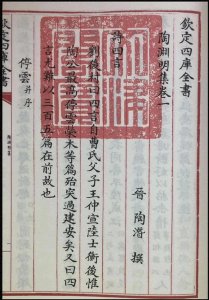 欽定四庫全書
陶淵明集卷一
晉 陶潛 撰
詩四言
劉後村曰四言自曹氏父子王仲宣陸士衡後惟
陶公最高停雲榮木等篇殆突過建安矣又曰四
言尤難以三百五篇在前故也
停雲并序
欽定四庫全書
陶淵明集